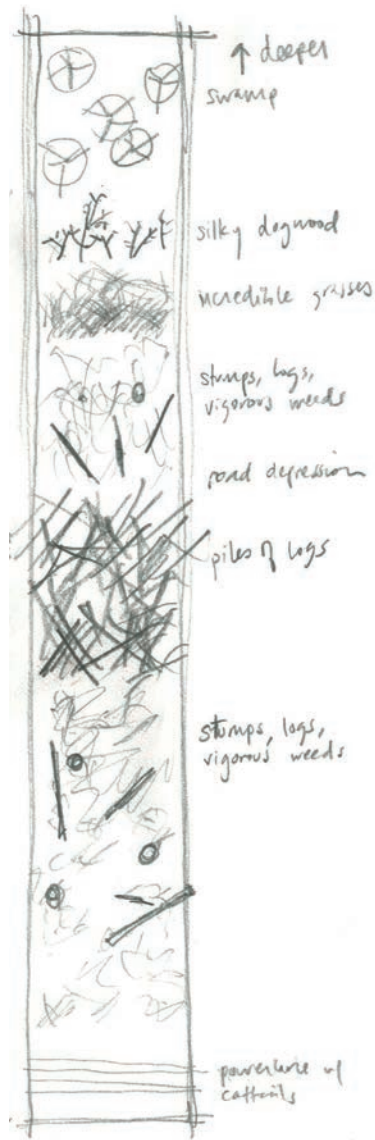 ↑ deeper
swamp
silky dogwood
incredible grasses
stumps, logs,
vigorous weeds
pond depression
piles of logs
stumps, logs,
vigorous weeds
powerline w/
cattails